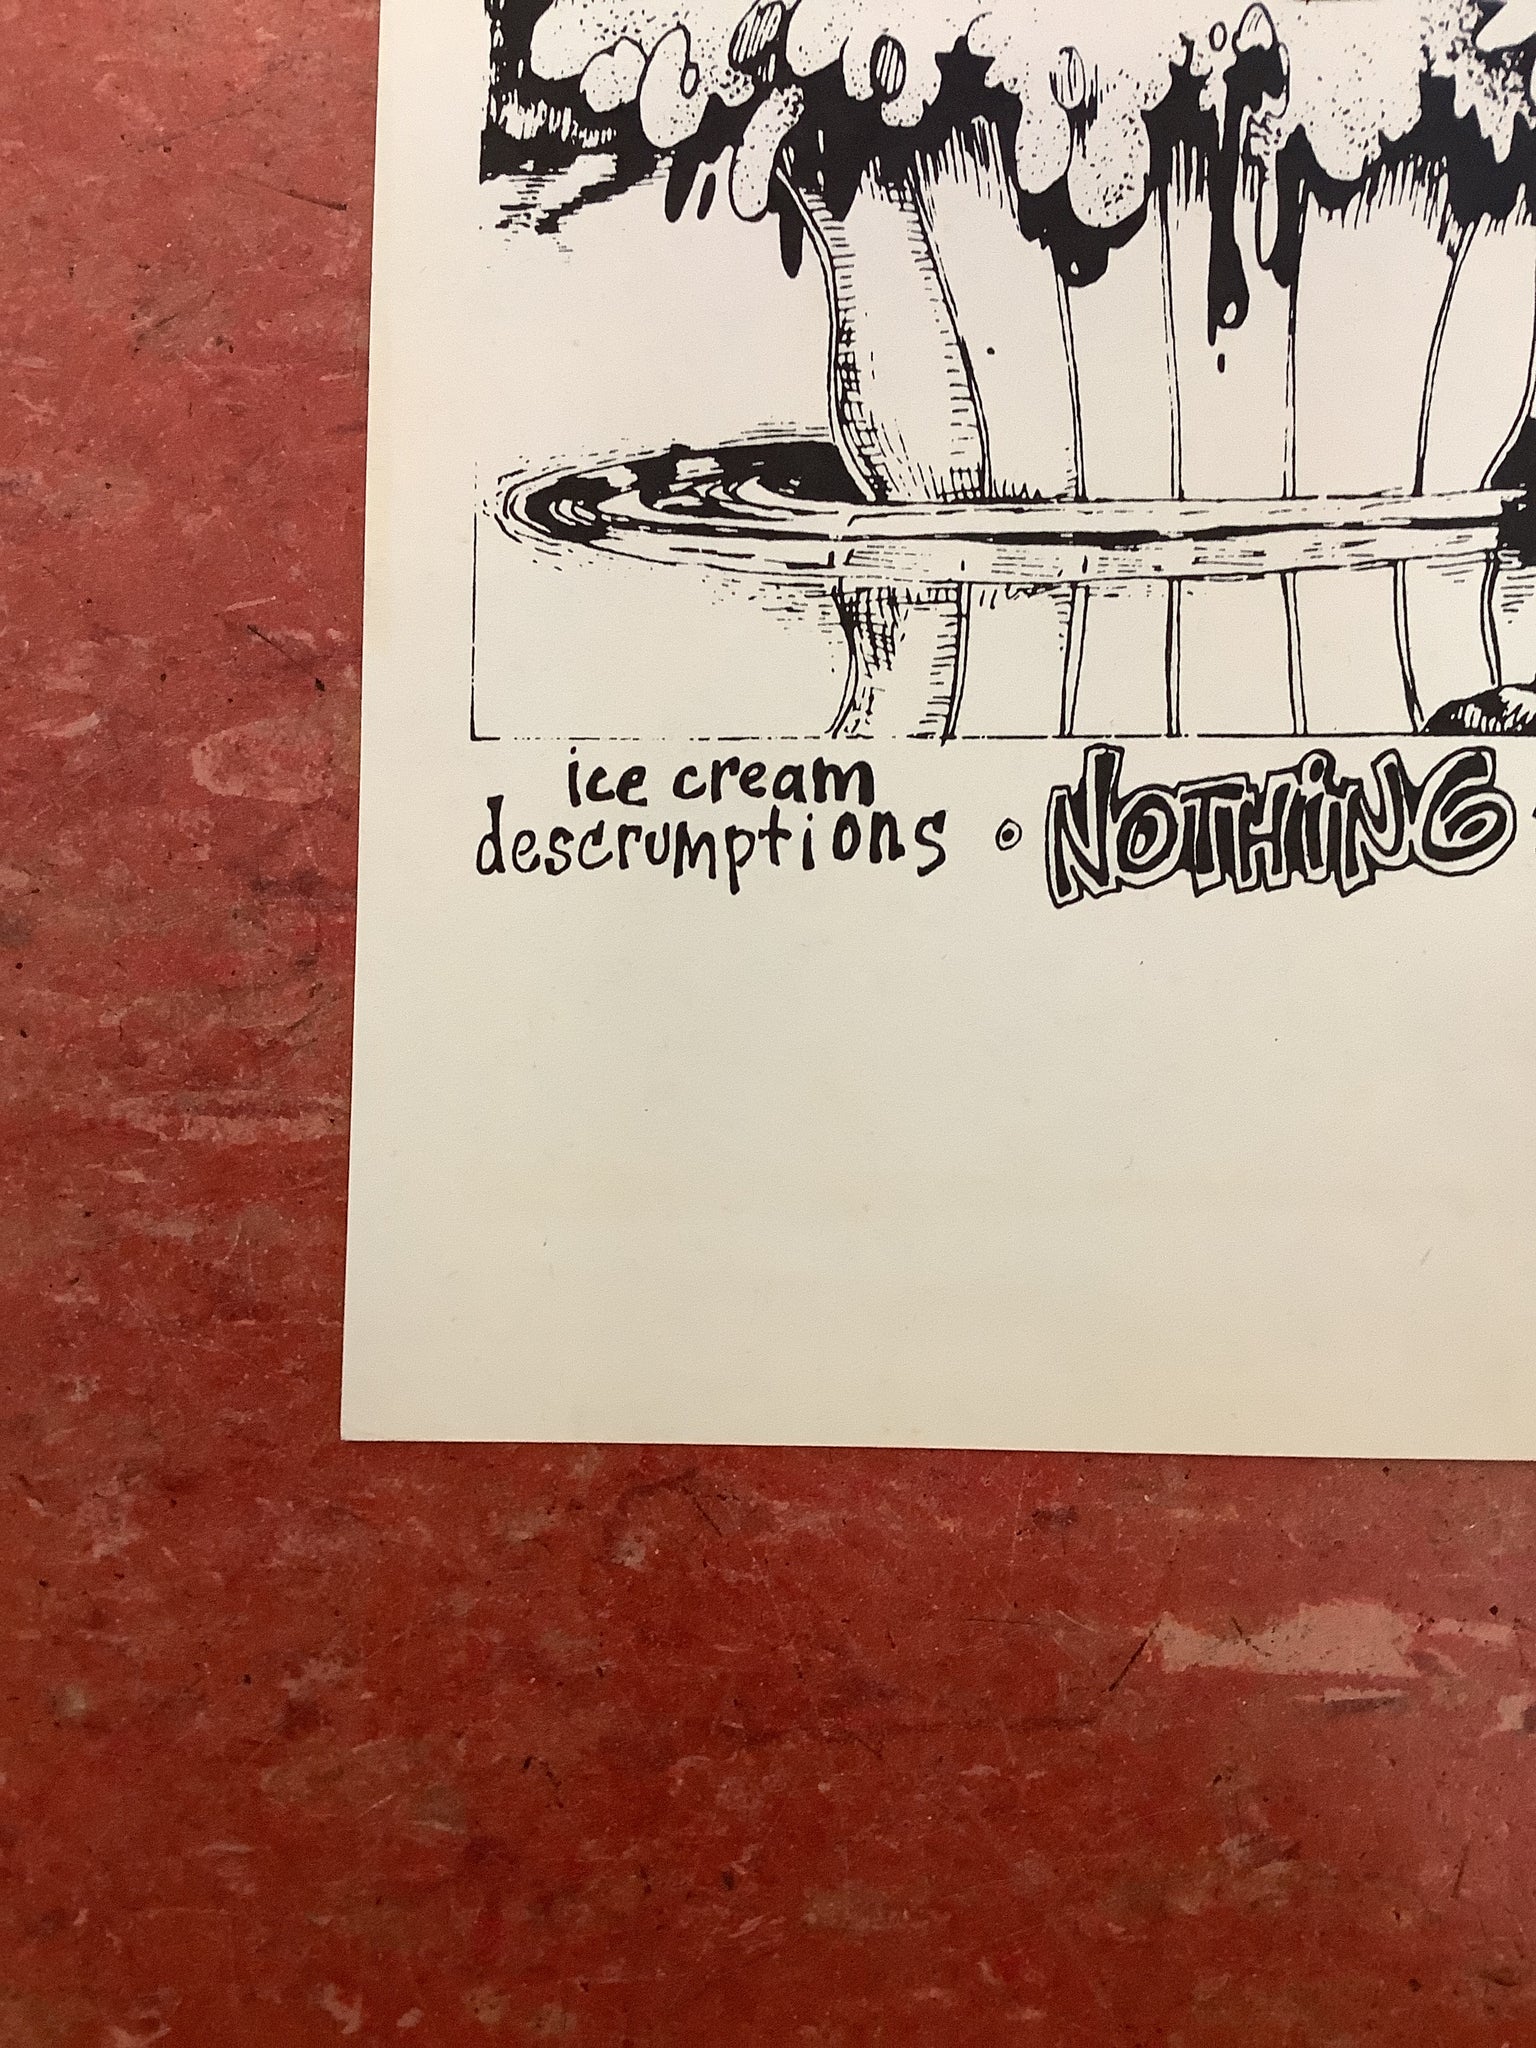 ice cream
descrumptions • NOTHING